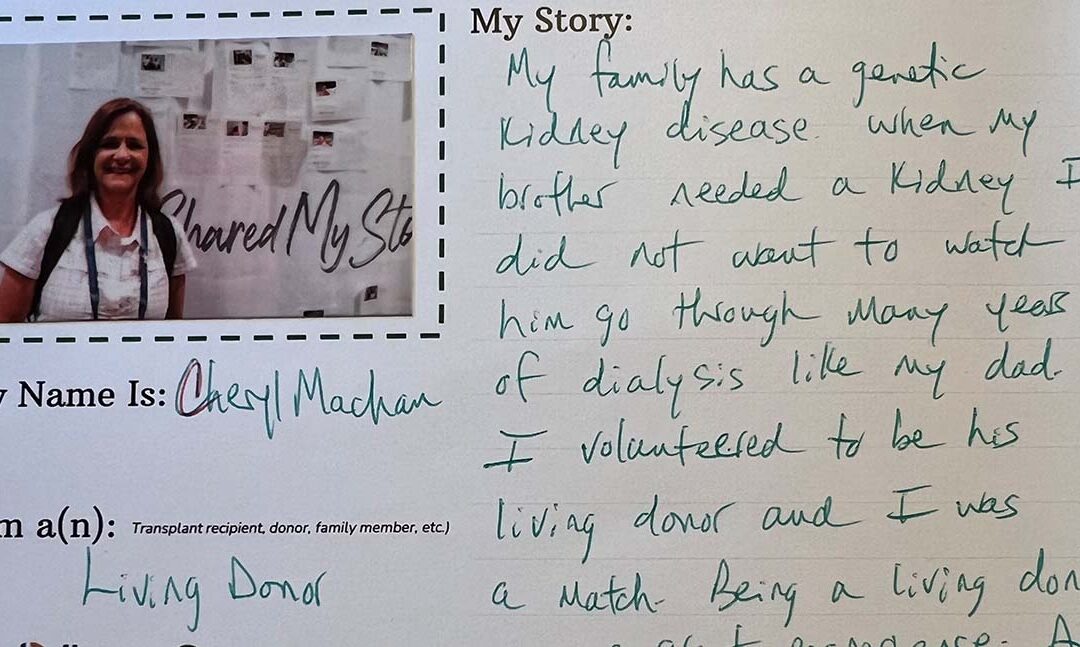 My Story:
My family has a genetic
Kidney disease. when my
brother needed a Kidney I
did not want to watch
him go through many years
of dialysis like my dad.
I volunteered to be his
living donor and I was
a match. Being a living don
Shared My Sto
Name Is: Cheryl Machan
m a(n): Transplant recipient, donor, family member, etc.)
Living Donor